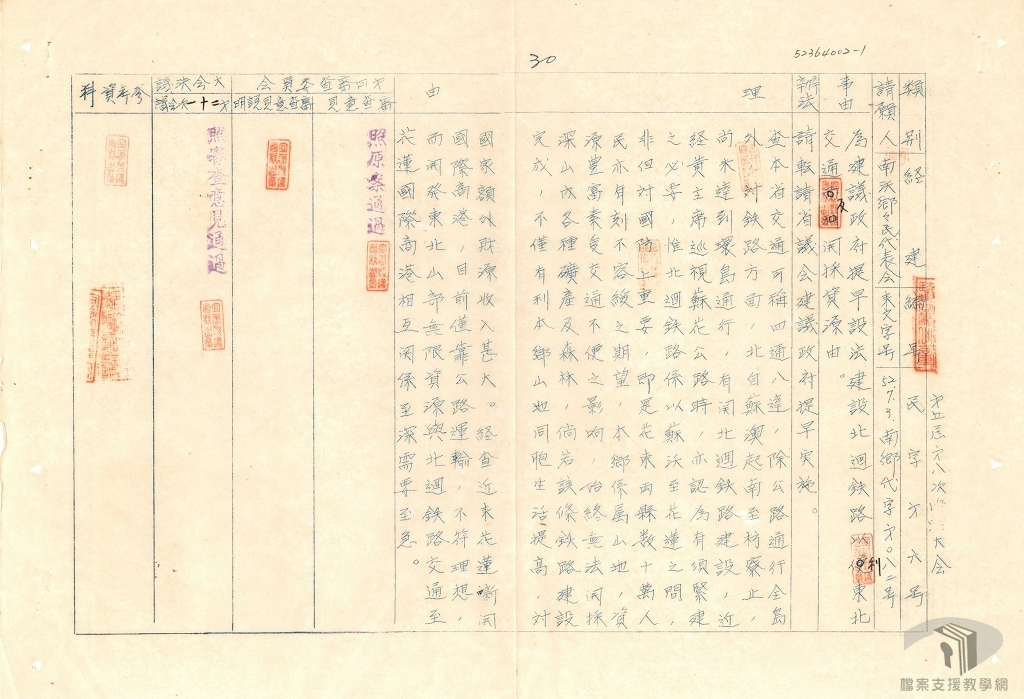 52364002-1
30
第五屆第八次臨時大会
類別 経建 編号 民字第六号
請願人 南沃鄉々民代表会 來文字号 52.7.3.南鄉代字第〇八二号
事由 為建議政府提早設法建設北迴鉄路以利東北
交通及開採資源由。
辦法 請転請省議会建議政府提早实施。
理由
查本省交通可称四通八達，除公路通行全島
外，对鉄路方面，北自蘇澳起南至枋寮止，
尚未達到環島通行，有関北迴鉄路建設，近
経黄主席巡視蘇花公路時，亦認為有須緊建
之必要，惟北迴鉄路係以蘇沃至花蓮之間，
非但対國防上重要，即是花東両縣数十萬人
民亦有刻不容緩之期望，本鄉係属山地，資
源豊富素受交通不便之影响，始終無法開採
深山内各種礦產及森林，倘若該條鉄路建設
完成，不僅有利本鄉山地同胞生活提高，対
國家額外財源收入甚大。経查近来花蓮嶄開
國際商港，目前僅靠公路運輸，不符理想，
而開発東北山部無限資源與北迴鉄路交通至
花蓮國際商港相互関係至深需要至急。
第四審查委員会
審查意見
照原案通過
審查意見說明
大会決議
第十二次会議
照審查意見通過
參考資料
檔案支援教學網